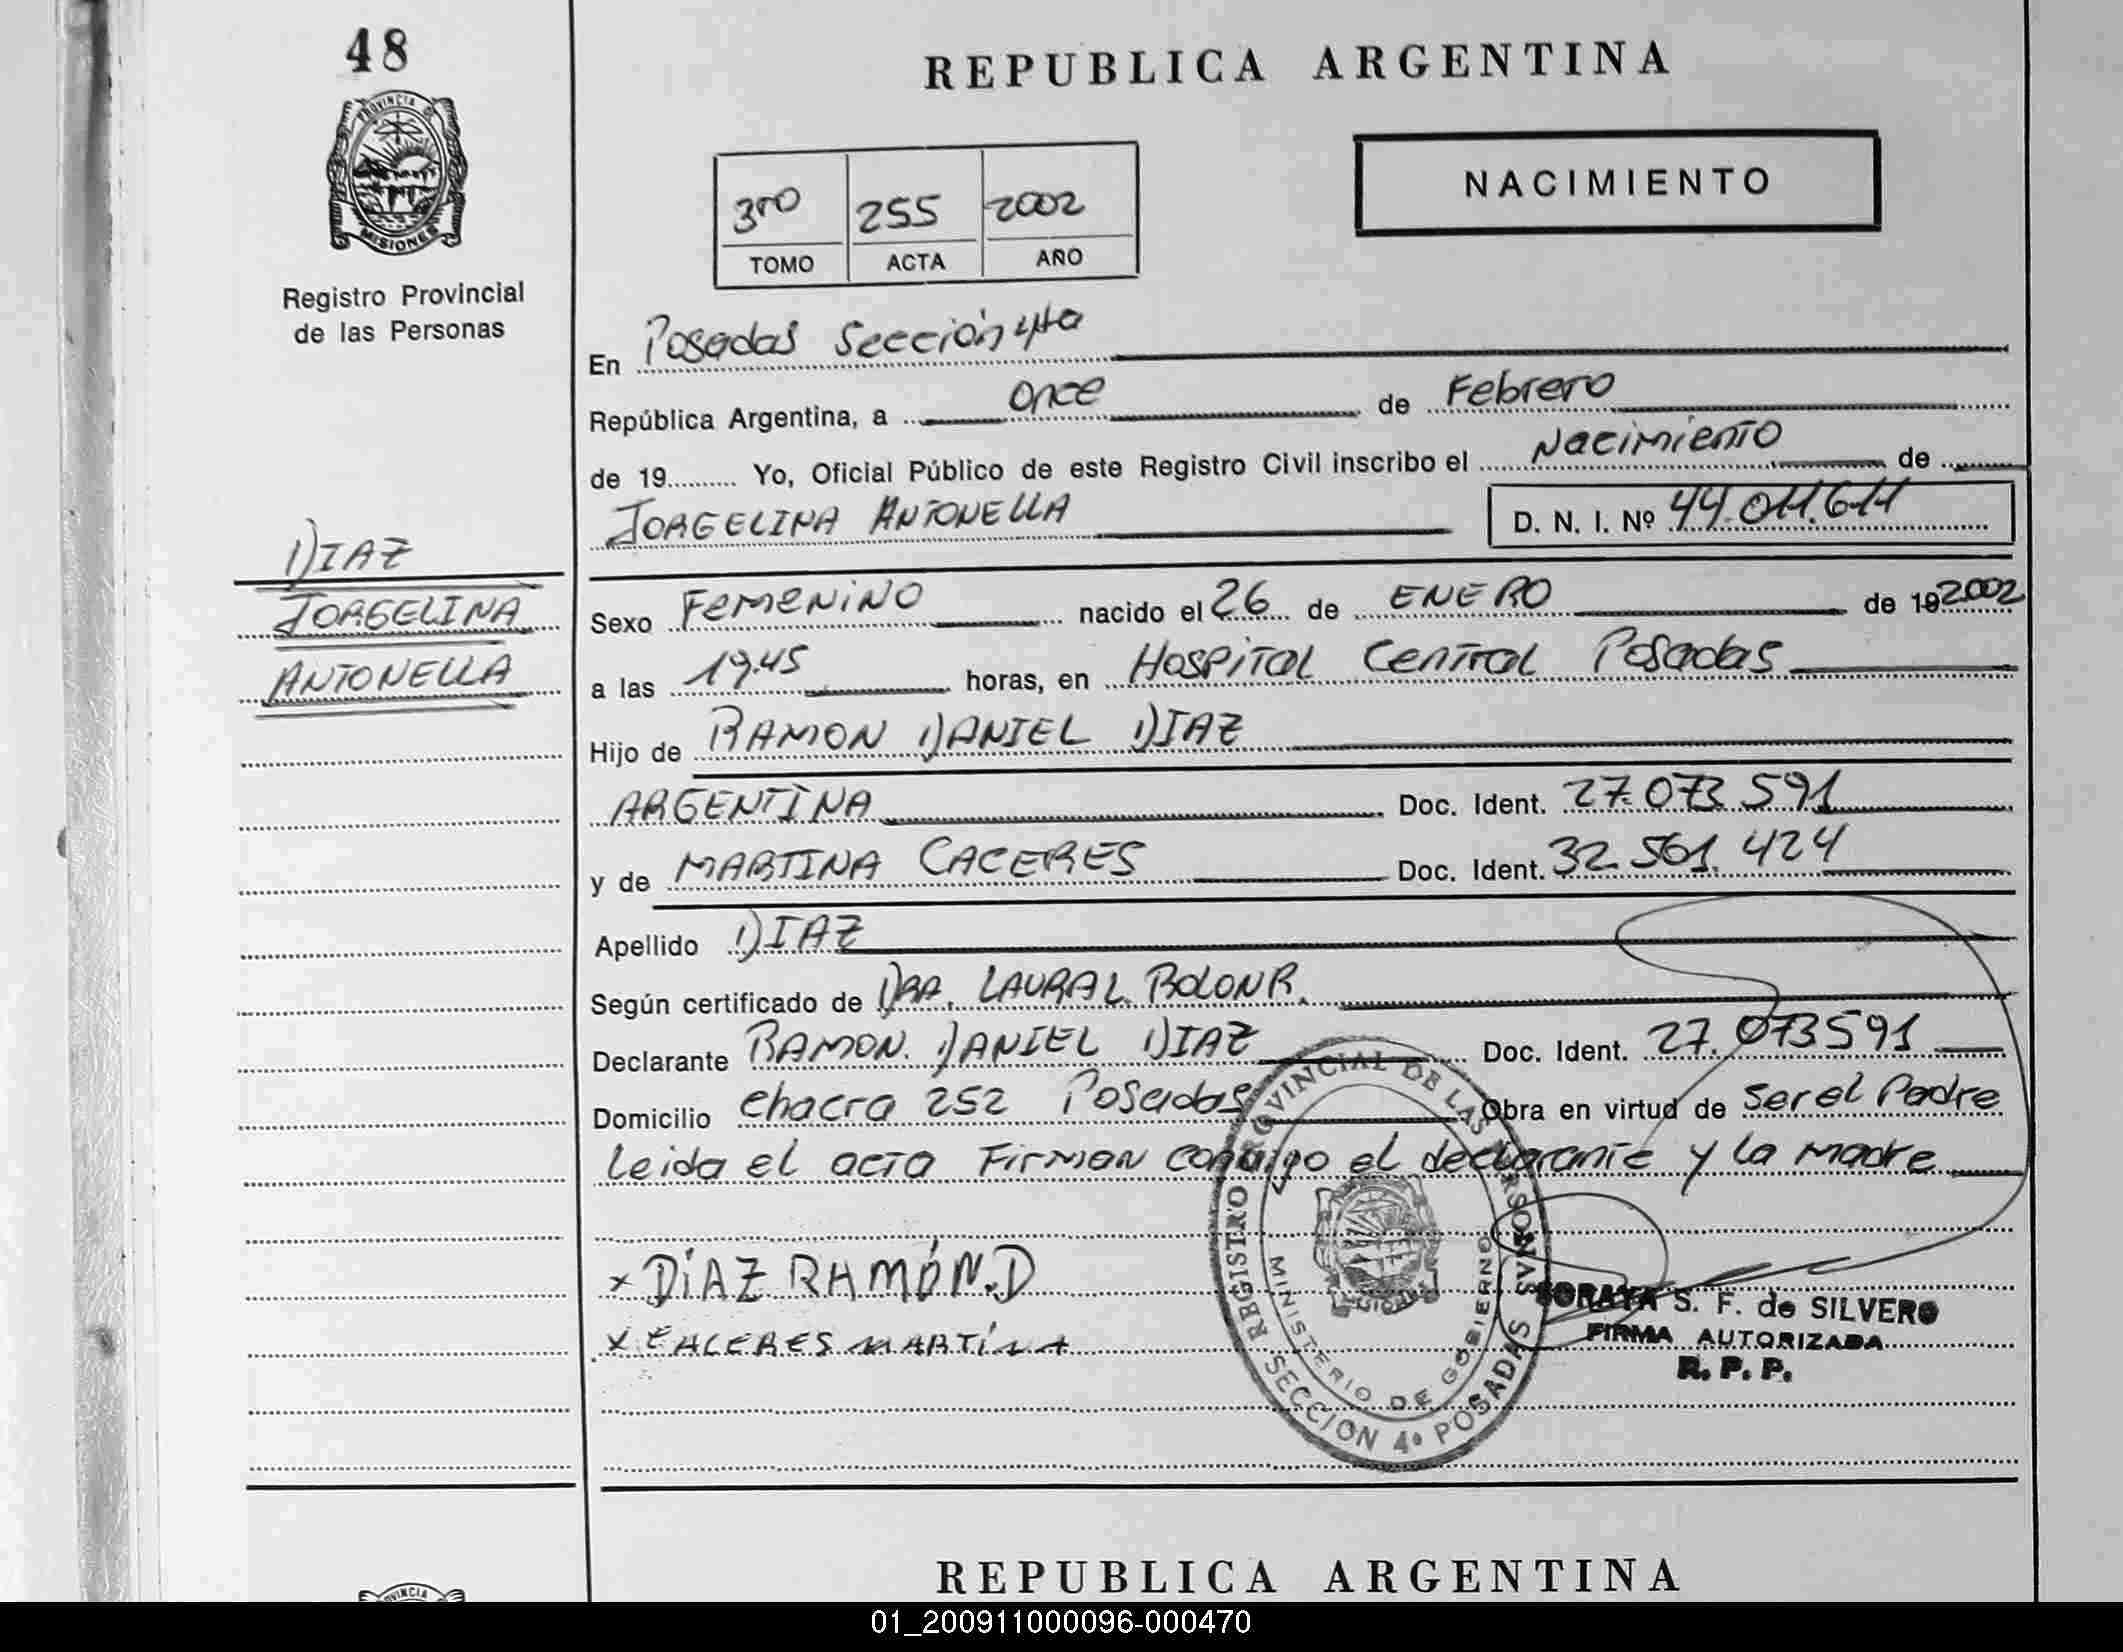 48
PROVINCIA D
MISIONES
Registro Provincial
de las Personas
DIAZ
JORGELINA
ANTONELLA
REPUBLICA ARGENTINA
3ro 255 2002
TOMO ACTA AÑO
NACIMIENTO
En Posadas Sección 4ta
República Argentina, a once de Febrero
de 19.......... Yo, Oficial Público de este Registro Civil inscribo el Nacimiento de
JORGELINA ANTONELLA D. N. I. Nº 44.011.611
Sexo FEMENINO nacido el 26 de ENERO de 19 2002
a las 19.45 horas, en Hospital Central Posadas
Hijo de RAMON DANIEL DIAZ
ARGENTINA Doc. Ident. 27.073.591
y de MARTINA CACERES Doc. Ident. 32.561.424
Apellido DIAZ
Según certificado de DRA. LAURA L. BOLON R.
Declarante RAMON DANIEL DIAZ Doc. Ident. 27.073591
Domicilio chacra 252 Posadas Obra en virtud de ser el Padre
Leida el acta Firman conmigo el declarante y la madre
x DíAZ RAMÓN.D
x CACERES MARTíNA
REGISTRO PROVINCIAL DE LAS PERSONAS
MINISTERIO DE GOBIERNO
SECCION 4º POSADAS
SORAYA S. F. de SILVERO
FIRMA AUTORIZADA
R. P. P.
REPUBLICA ARGENTINA
VINCIA
01_200911000096-000470